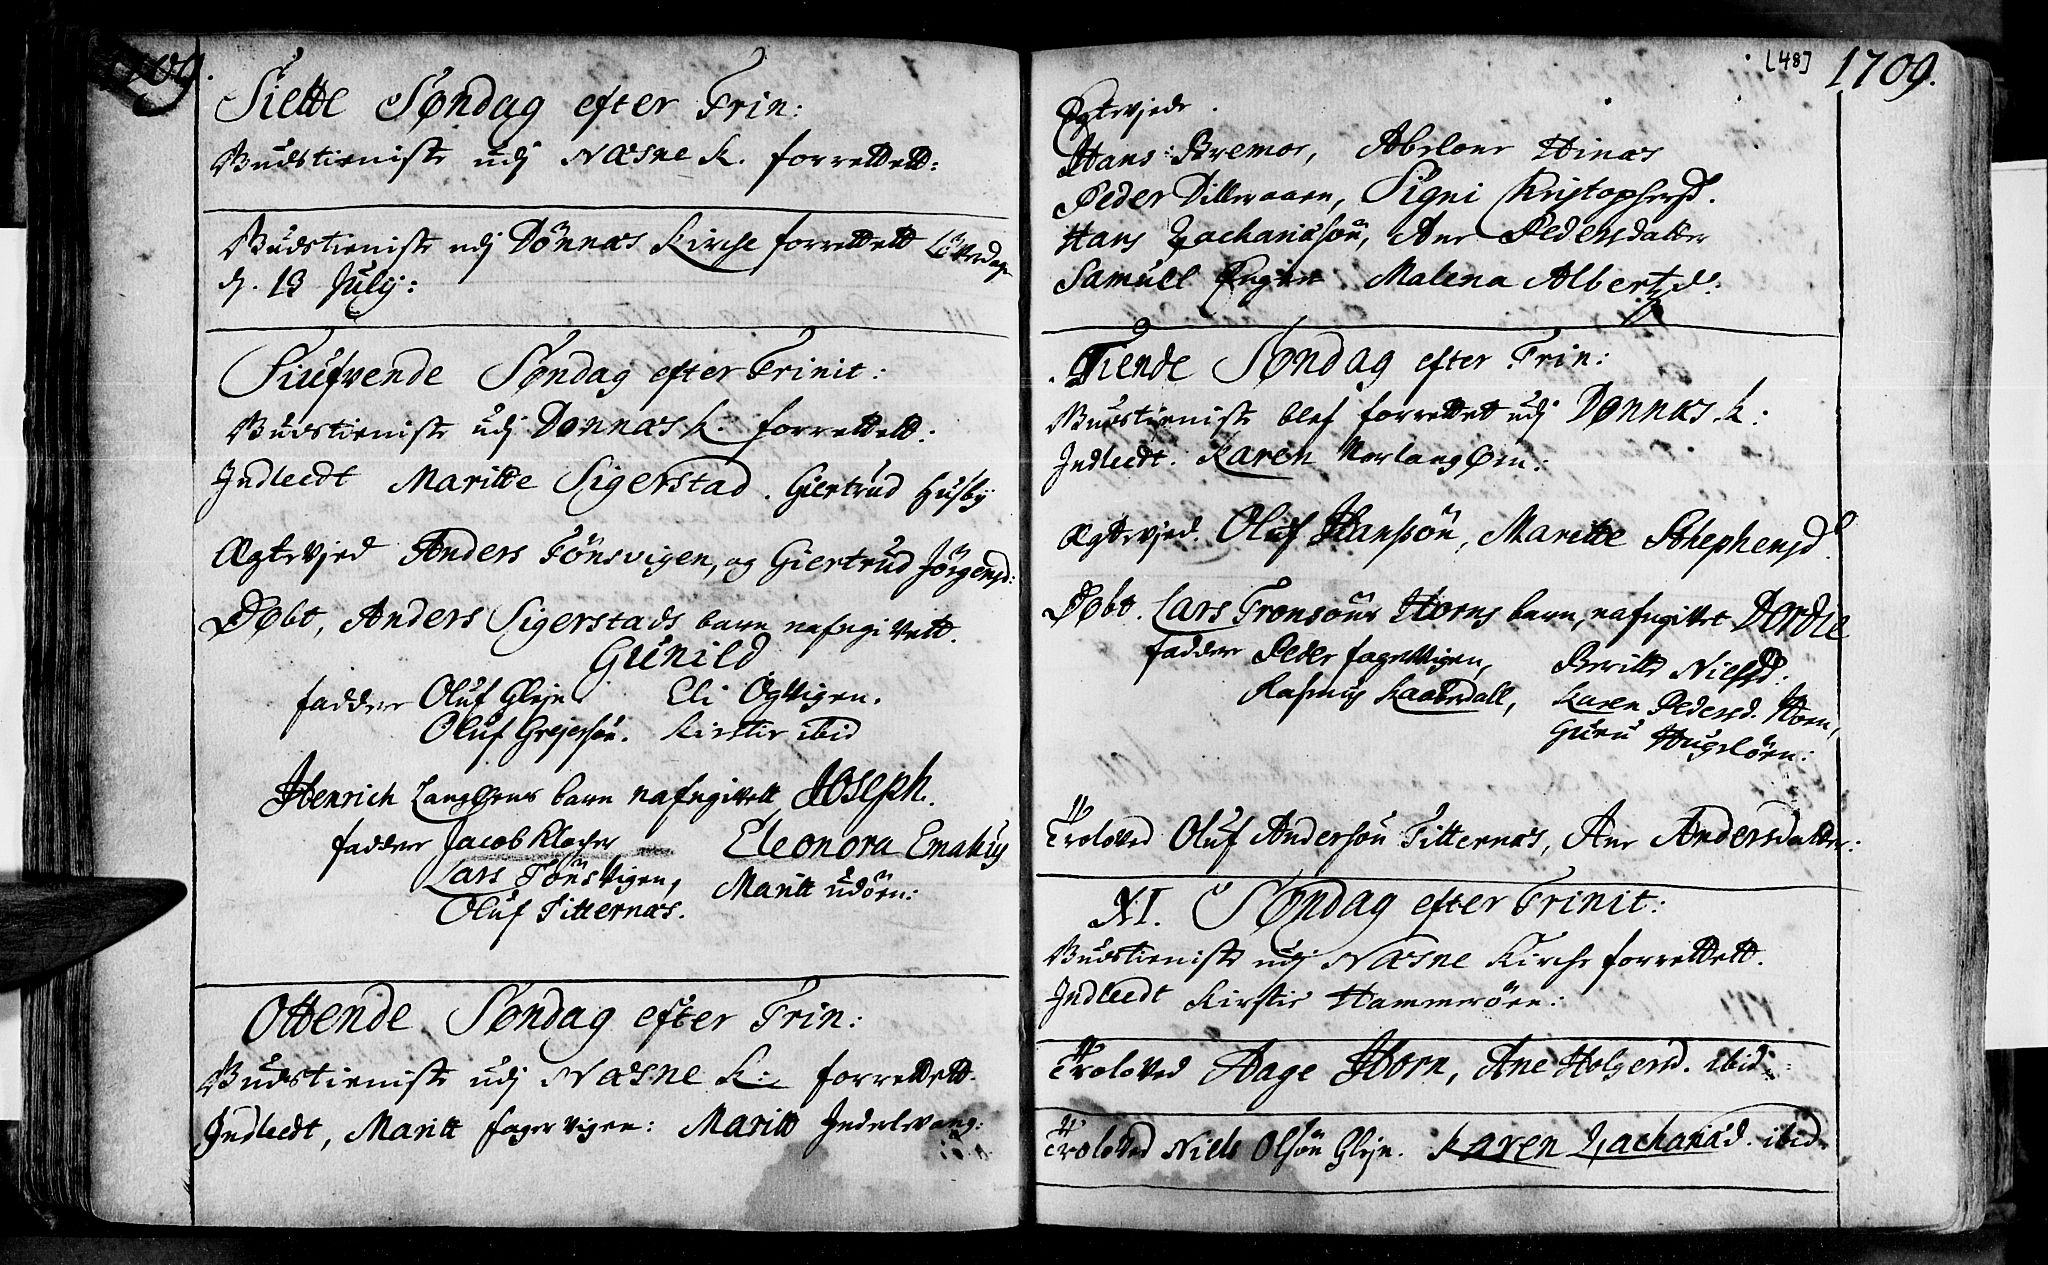 1709.
Siette Søndag efter Trin:
Gudstieniste udj Næsne K. forrettett:
Gudstieniste udj Dönnæs Kirche forrettett Löverdagen
d. 13 Julij:
Siufvende Søndag efter Trinit:
Gudstieniste udj Dønnæs K. forrettett:
Indleedt Maritte Sigerstad. Giertrud Husby
Ægtevied Anders Tönsvigen, og Giertrud Jörgensd:
Døbt, Anders Sigerstads barn nafngivett.
Gunild
faddere Oluf Glejn Eli Ogvigen.
Oluf Grejersön. Kirstie ibid
Henrich Langørns barn nafngivett Joseph.
faddere Jacob Klocher Eleonora Emahus
Lars Tönsvigen, Maritt udörn:
Oluf Titternæs.
Ottende Søndag efter Trin:
Gudstieniste udj Næsne K: forrettett.
Indleedt, Maritt fagervigen: Maritt Inderlvang:
[48] 1709.
Egtevjede.
Hans Bremos, Abelone Hinæs
Peder Dillevaaen, Signi Christophersd.
Hans Zachariasön, Ane Pedersdatter
Samuel Malena Albertzd:
Tiende Søndag efter Trin:
Gudstieniste blef forrettet udj Dønnæs K:
Indleedt. Karen Norlangørn:
Ægtevjed. Oluf Hansön, Maritte Sthephensd.
Døbt. Lars Tronsöns Horns barn, nafngivet Dordie
faddere Peder fagervigen, Beritte Nielsd:
Rasmus Kaabbdall, Karen Pedersd. Horn,
Guru Hugelörn:
Troloved Oluf Andersön Titternæs, Ane Andersdatter:
XI. Søndag efter Trinit:
Gudstieniste udj Næsne Kirche forrettett.
Indleedt Kirstie Hammeröen:
Troloved Aage Horn, Ane Holgersd. ibid:
Troloved Niels Olsön Glejn. Karen Zachariæd. ibid